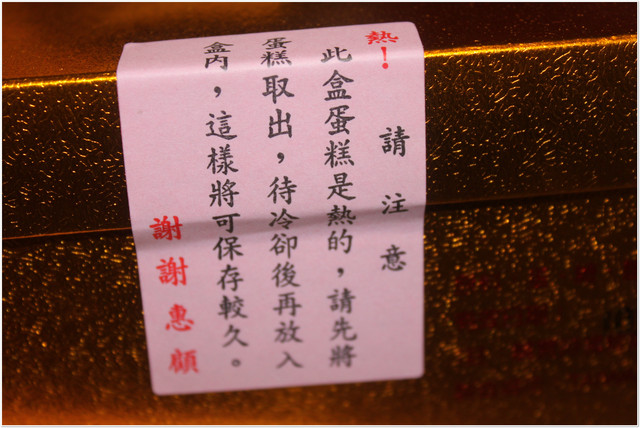 熱！
請注意
此盒蛋糕是熱的，請先將
蛋糕取出，待冷卻後再放入
盒內，這樣將可保存較久。
謝謝惠顧